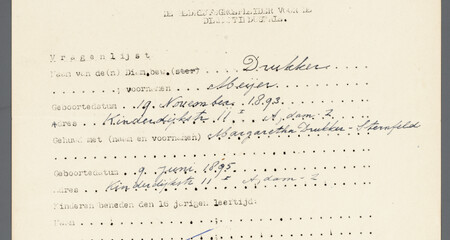 DE BEDRIJFSGROEPLEIDER VOOR DE
V r a g e n l i j s t
Naam van de(n) Diam.bew.(ster) Drukker
" " ; voornamen Meijer
Geboortedatum 19 November 1893
Adres Kinderdijkstr 11 I A,dam-Z
Gehuwd met (naam en voornamen) Margaretha Drukker-Sternfeld
Geboortedatum 9 Juni 1895
Adres Kinderdijkstr 11 I A,dam-Z
Kinderen beneden den 18 jarigen leeftijd:
Naam